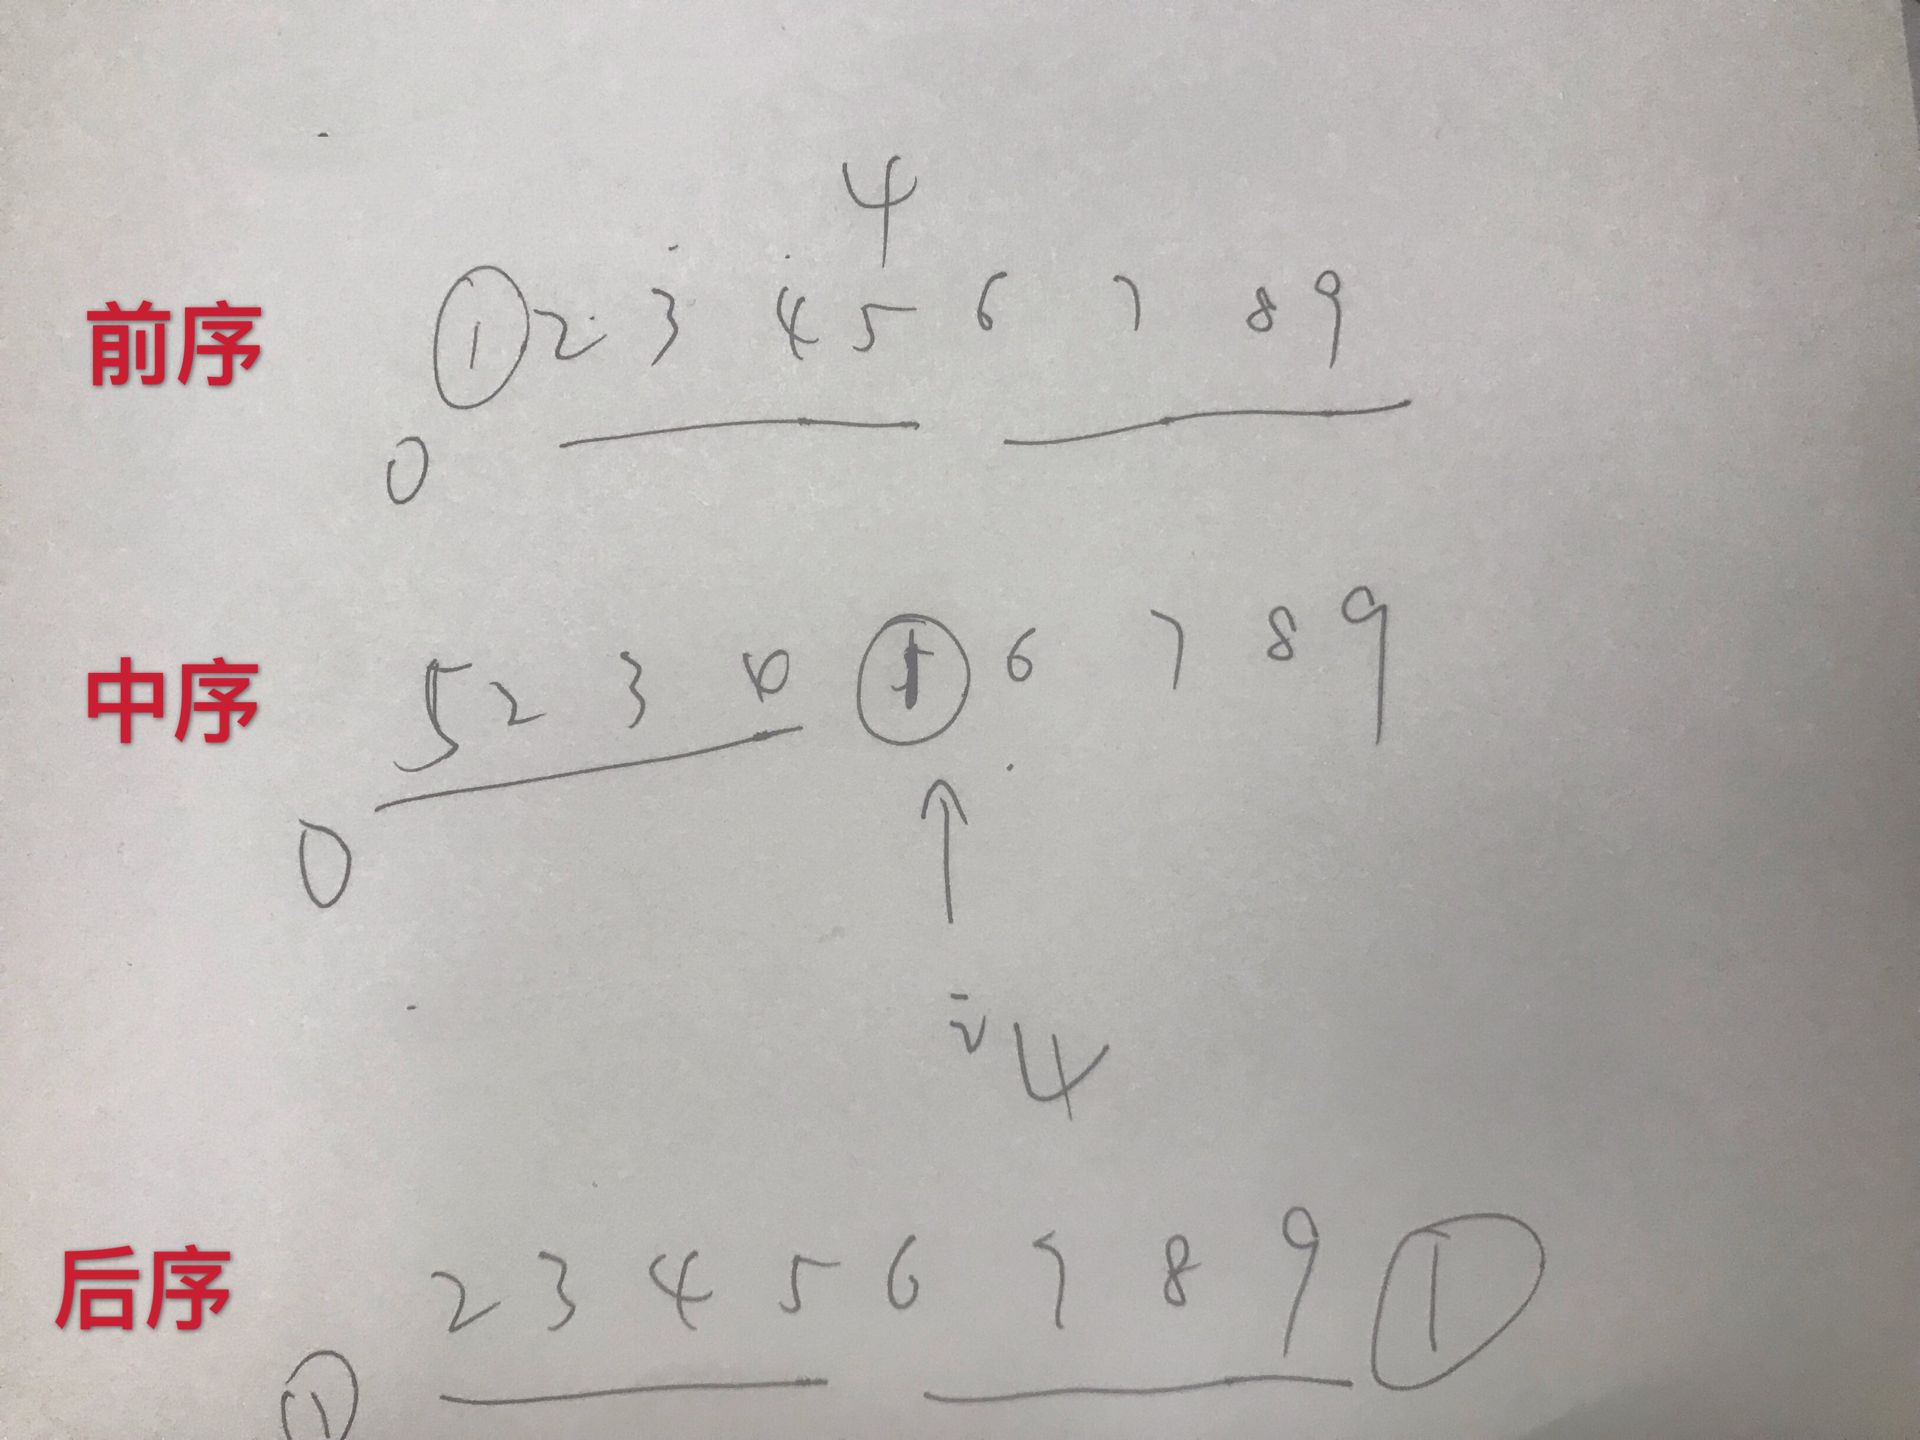 4
前序 ① 2 3 4 5 6 7 8 9
0
中序 5 2 3 ① 6 7 8 9
0
4
后序 2 3 4 5 6 7 8 9 ①
①